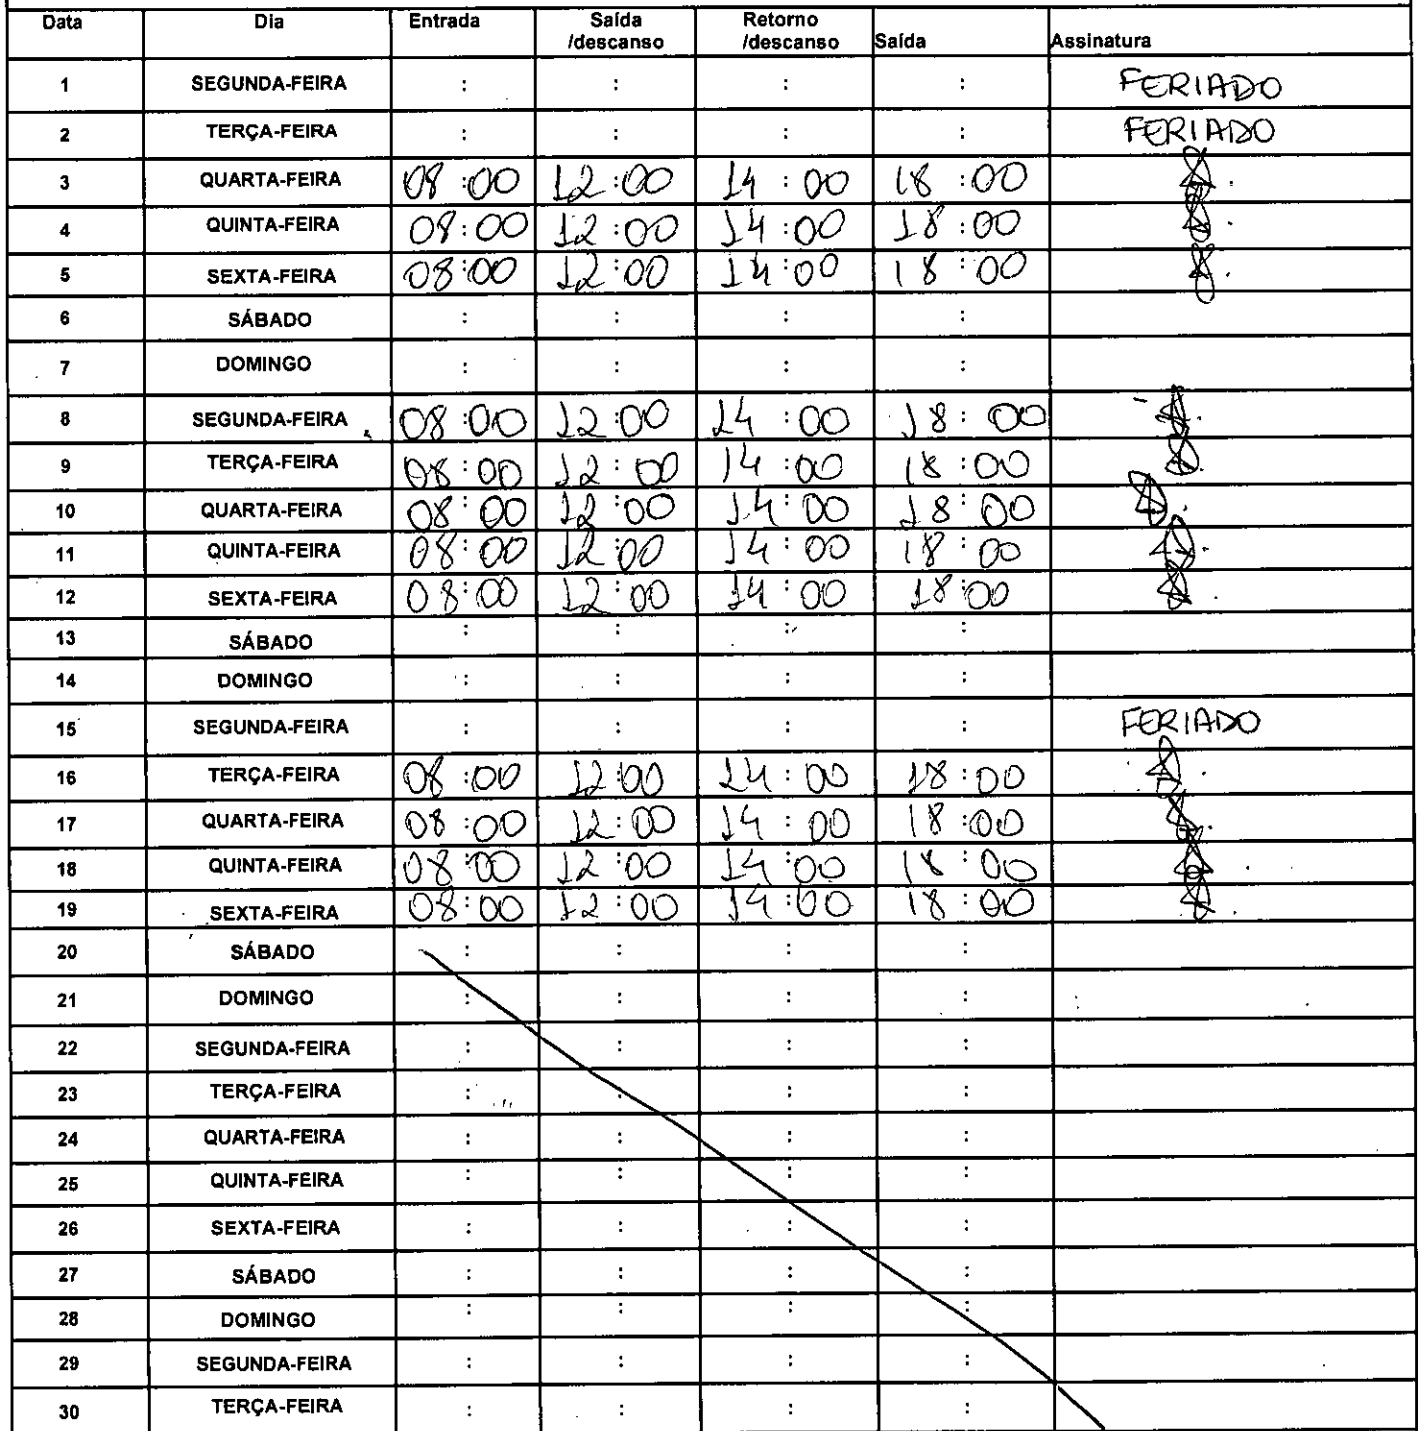 Data Dia Entrada Saída /descanso Retorno /descanso Saída Assinatura
1 SEGUNDA-FEIRA : : : : FERIADO
2 TERÇA-FEIRA : : : : FERIADO
3 QUARTA-FEIRA 08:00 12:00 14:00 18:00
4 QUINTA-FEIRA 08:00 12:00 14:00 18:00
5 SEXTA-FEIRA 08:00 12:00 14:00 18:00
6 SÁBADO : : : :
7 DOMINGO : : : :
8 SEGUNDA-FEIRA 08:00 12:00 14:00 18:00
9 TERÇA-FEIRA 08:00 12:00 14:00 18:00
10 QUARTA-FEIRA 08:00 12:00 14:00 18:00
11 QUINTA-FEIRA 08:00 12:00 14:00 18:00
12 SEXTA-FEIRA 08:00 12:00 14:00 18:00
13 SÁBADO : : : :
14 DOMINGO : : : :
15 SEGUNDA-FEIRA : : : : FERIADO
16 TERÇA-FEIRA 08:00 12:00 14:00 18:00
17 QUARTA-FEIRA 08:00 12:00 14:00 18:00
18 QUINTA-FEIRA 08:00 12:00 14:00 18:00
19 SEXTA-FEIRA 08:00 12:00 14:00 18:00
20 SÁBADO : : : :
21 DOMINGO : : : :
22 SEGUNDA-FEIRA : : : :
23 TERÇA-FEIRA : : : :
24 QUARTA-FEIRA : : : :
25 QUINTA-FEIRA : : : :
26 SEXTA-FEIRA : : : :
27 SÁBADO : : : :
28 DOMINGO : : : :
29 SEGUNDA-FEIRA : : : :
30 TERÇA-FEIRA : : : :